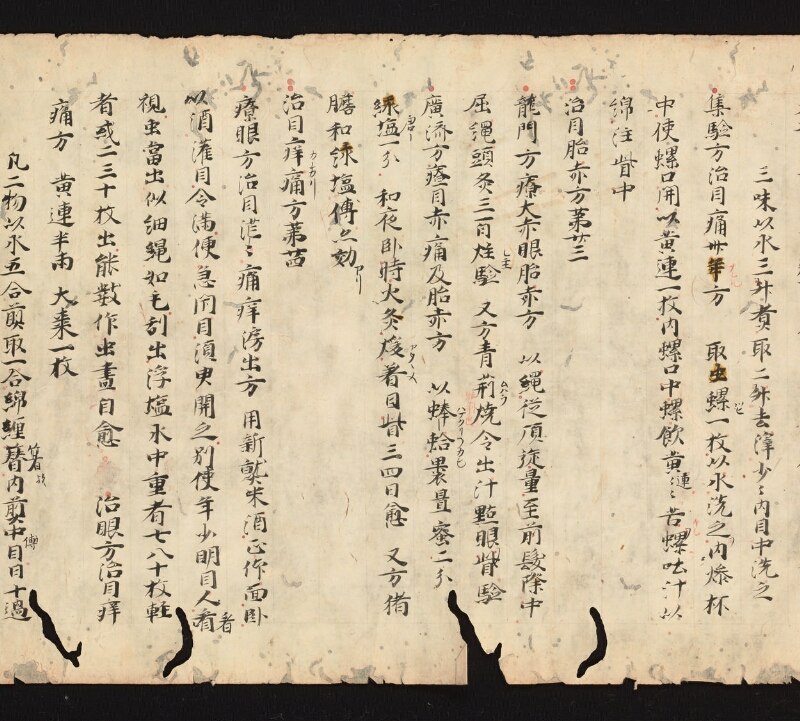 三味以水三升煮取二升去滓少〻內目中洗之
集驗方治目痛卅年方　取虫螺一枚以水洗之內燥杯
中使螺口開以黃連一枚內螺口中螺飲黃連〻苦螺吐汁以
綿注眥中
治目胎赤方第廿三
龍門方療大赤眼胎赤方　以繩從頂旋量至前髮際中
屈繩頭灸三百炷驗　又方青荊燒令出汁點眼眥驗
廣濟方療目赤痛及胎赤方　以蚌蛤裹置蜜二分
綠塩一分　和夜卧時火灸煖著目眥三四日愈　又方猪
膽和綠塩傅之効
治目痒痛方第廿四
療眼方治目澁〻痛痒滂出方　用新美酒正作面卧
以酒灌目令滿便急閇目須臾開之別使年少明目人看
視虫當出似細繩如毛刮出浮塩水中重者七八十枚軽
者或二三十枚出能數作虫盡自愈　治眼方治目痒
痛方　黃連半兩　大棗一枚
凡二物以水五合煎取一合綿纏㬱內煎中目日十過